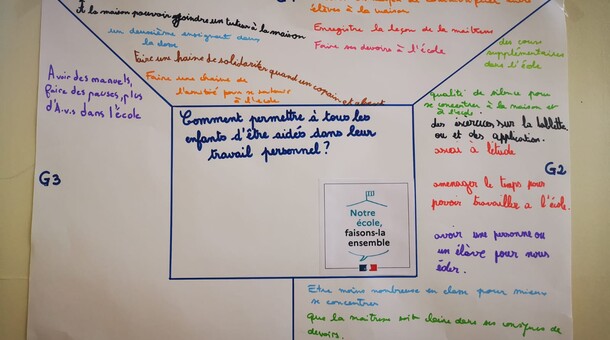 élèves à la maison
À la maison pouvoir joindre un tuteur à la maison
un deuxième enseignant dans
la classe
Enregistre la leçon de la maîtresse
Faire ses devoirs à l'école
Faire une chaine de solidarité quand un copain est absent
Faire une chaine de
l'amitié pour se soutenir
à l'école
des cours
supplémentaires
dans l'école
Avoir des manuels,
faire des pauses, plus
d'A.v.s dans l'école
G3
Comment permettre à tous les
enfants d'être aidés dans leur
travail personnel ?
Notre
école,
faisons-la
ensemble
qualité de silence pour
se concentrer à la maison et
à l'école
des exercices sur la tablette
ou et des application.
à l'étude
G2
amenager le temps pour
povoir travailler a l'école.
avoir une personne ou
un élève pour nous
éder.
Etre moins nombreuse en classe pour mieux
se concentrer
que la maitresse soit claire dans ses consignes de
devoirs.